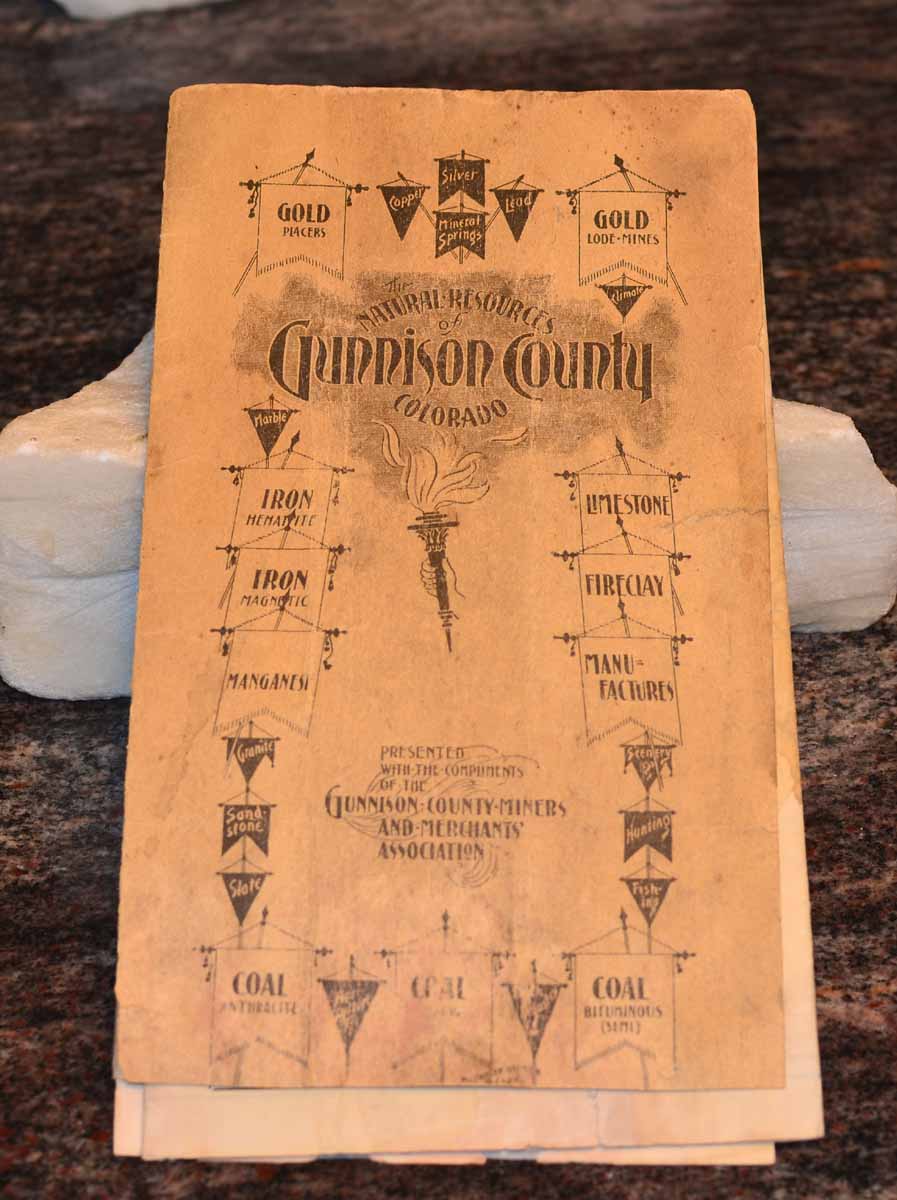 Silver
Copper
Lead
Mineral
Springs
GOLD
PLACERS
GOLD
LODE-MINES
Climate
The
NATURAL-RESOURCES
of
GUNNISON COUNTY
COLORADO
Marble
IRON
HEMATITE
IRON
MAGNETIC
MANGANESE
LIMESTONE
FIRECLAY
MANU=
FACTURES
Granite
Sand-
stone
Slate
PRESENTED
WITH-THE-COMPLIMENTS
OF THE
GUNNISON-COUNTY-MINERS
AND-MERCHANTS'
ASSOCIATION
Scenery
Hunting
Fish-
ing
COAL
ANTHRACITE
COAL
COAL
BITUMINOUS
(SEMI)